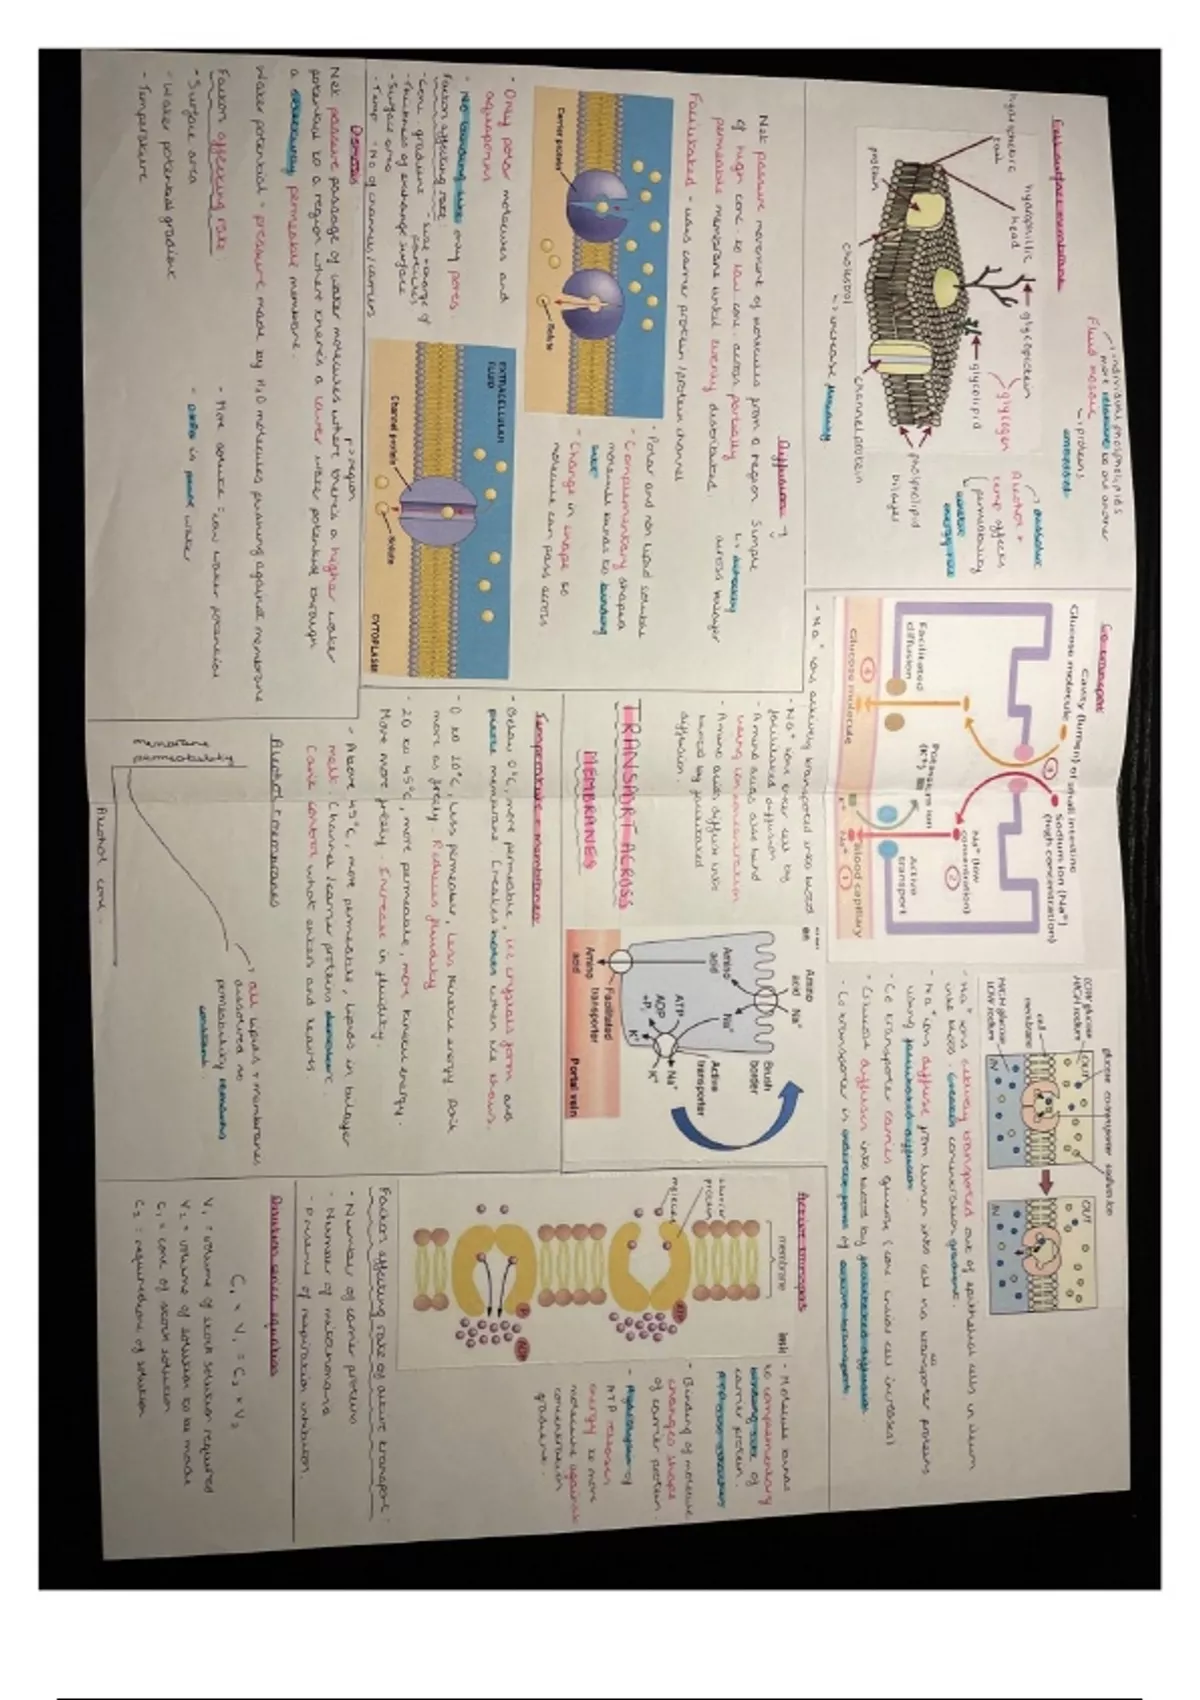 Cell surface membrane
Fluid mosaic
individual phospholipids
more relative to one another
proteins
embedded
hydrophobic
tail
hydrophilic
head
glycoprotein
glycolipid
protein
cholestrol
increase
channel protein
phospholipid
bilayer
Alcohol +
temp affects
permeability
dissolve
kinetic
Diffusion
Net passive movement of molecules from a region
of high conc. to low conc. across partially
permeable membrane until evenly distributed.
Simple
across bilayer
Facilitated - uses carrier protein / protein channel
Carrier protein
Solute
- Polar and non lipid soluble
- Complementary shaped
molecule binds to binding
- Change in shape so
molecule can pass across
- Only polar molecules and
aquaporins
- No binding site only pores.
Factors affecting rate:
- Conc. gradient
- size + charge of
particles
- Thickness of exchange surface
- Surface area
- Temp
- No of channels/carriers
EXTRACELLULAR
FLUID
Channel protein
Solute
CYTOPLASM
Osmosis
region
Net passive passage of water molecules where there's a higher water
potential to a region where there's a lower water potential through
a selectively permeable membrane.
Water potential = pressure made by H2O molecules pushing against membrane
Factors affecting rate:
- Surface area
- Water potential gradient
- Temperature
- More solute = low water potential
is pure water
Co-transport
Cavity (lumen) of small intestine
Glucose molecule
Sodium ion (Na+)
(high concentration)
Na+ (low
concentration)
Potassium ion
(K+)
Facilitated
diffusion
Active
transport
Glucose molecule
Blood capillary
K+
Na+
1
2
3
4
LOW glucose
HIGH sodium
HIGH glucose
LOW sodium
cell
membrane
OUT
IN
glucose cotransporter
sodium ion
OUT
IN
- Na+ ions actively transported out of epithelial cells in ileum
into blood. Creates concentration gradient.
- Na+ ions diffuse from lumen into cell via cotransporter proteins
using facilitated diffusion
- Co transporter carries glucose (conc inside cell increases)
- Glucose diffuses into blood by facilitated diffusion
- Co transporter is indirect form of active transport.
- Na+ ions actively transported into blood
- Na+ ions enter cell by
facilitated diffusion
- Amino acids also bind
- Amino acids diffuse into
blood by facilitated
diffusion.
TRANSPORT ACROSS
MEMBRANES
Amino
acid
Na+
Brush
border
Amino
acid
Na+
ATP
ADP
+Pi
K+
Na+
K+
Active
transporter
Facilitated
transporter
Amino
acid
Portal vein
Temperature + membranes
- Below 0°C, more permeable, ice crystals form and
pierce membrane. Creates holes when ice thaws.
- 0 to 20°C, less permeable, less kinetic energy don't
move as freely. Reduces fluidity
- 20 to 45°C, more permeable, more kinetic energy.
Move more freely. Increase in fluidity.
- Above 45°C, more permeable, lipids in bilayer
melt. Channel/carrier proteins denature.
Can't control what enters and leaves
Alcohol + membranes
membrane
permeability
Alcohol conc.
all lipids + membranes
dissolved so
permeability remains
constant.
Active transport
membrane
carrier
protein
molecules
ATP
Pi
ADP
- Molecule binds
to complementary
binding site of
carrier protein.
- Binding of molecule
changes shape
of carrier protein.
- Hydrolysis of
ATP releases
energy to move
molecules against
concentration
gradient.
Factors affecting rate of active transport:
- Number of carrier proteins
- Number of mitochondria
- Presence of respiration inhibitors.
Dilution series equation
C1 × V1 = C2 × V2
V1 = volume of stock solution required
V2 = volume of solution to be made
C1 = conc of stock solution
C2 = required conc of solution